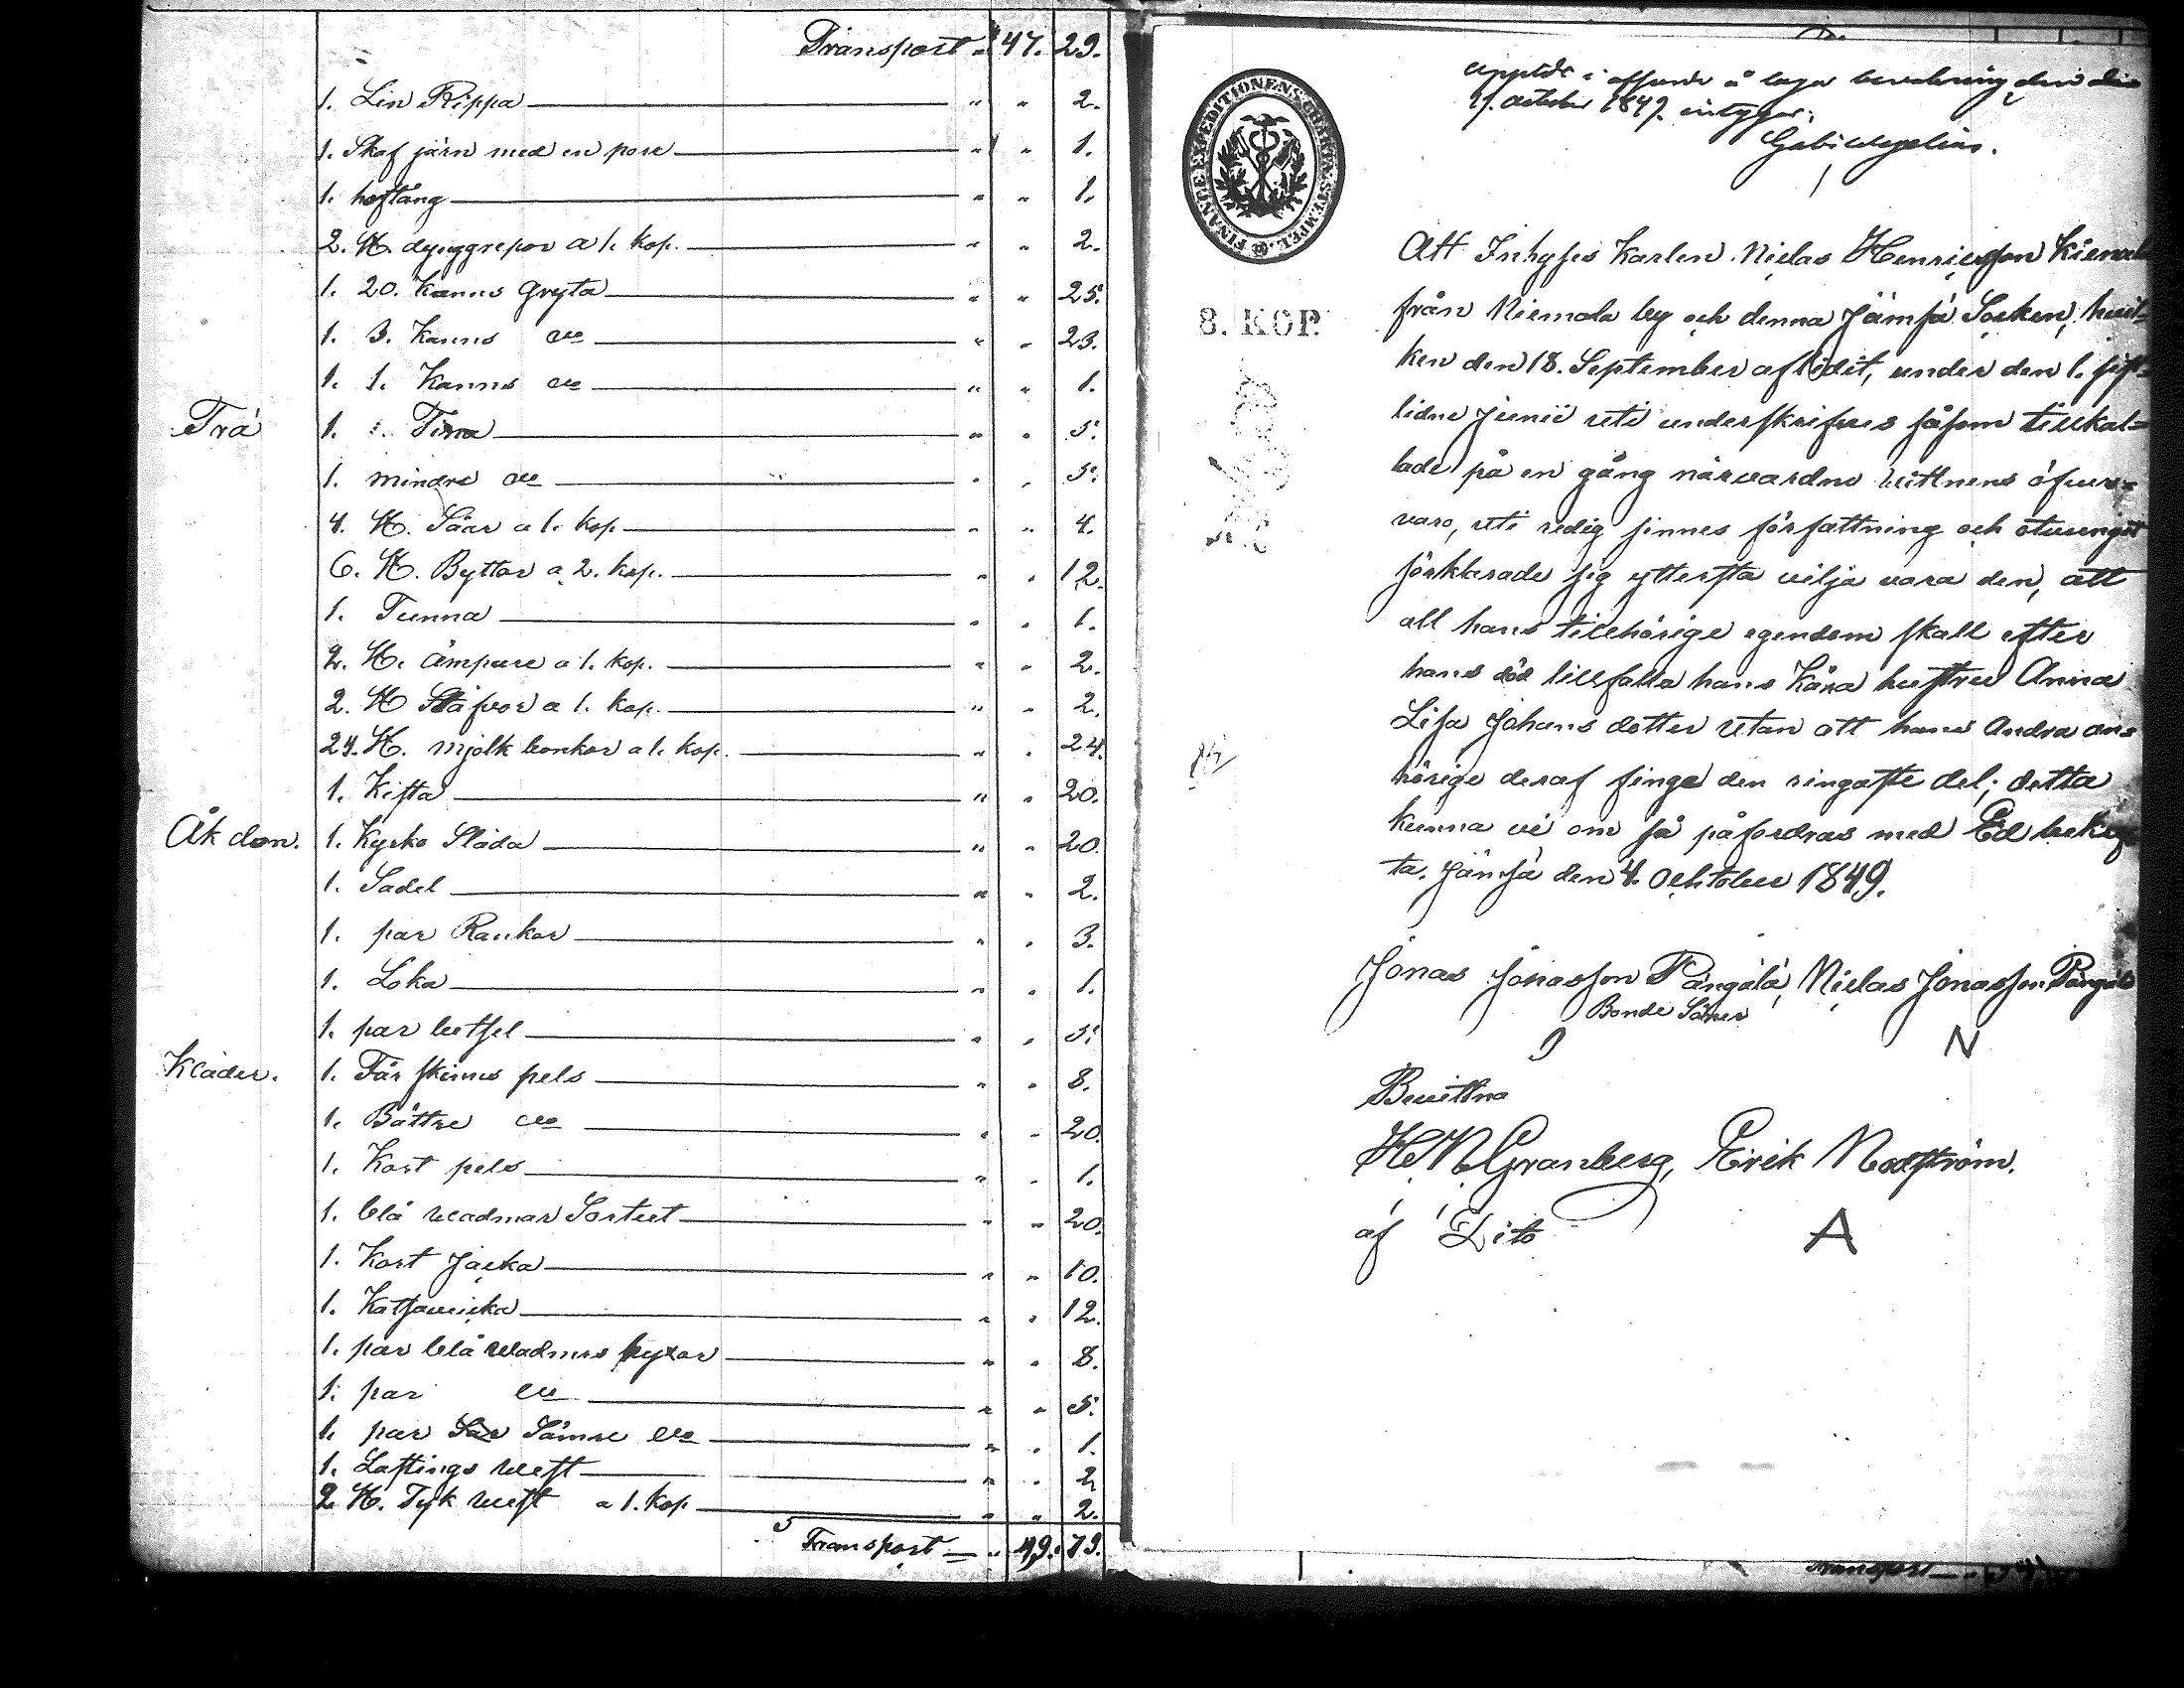 Transport " 47. 29.
1. Lin Rippa " " 2.
1. Skaf järn med en pore " " 1.
1. hoftång " " 1.
2. St. dynggrepor a 1. kop. " " 2.
1. 20. Kanns Gryta " " 25.
1. 3. Kanns do " " 23.
1. 1. Kanns do " " 1.
Trä 1. Tina " " 5.
1. mindre do " " 5.
4. St. Såar a 1. kop " " 4.
6. St. Byttor a 2. kop. " " 12.
1. Tunna " " 1.
2. St. Ämpare a 1. kop. " " 2.
2. St Stäfvor a 1. kop. " " 2.
24. St. mjölk bonkor a 1. kop. " " 24.
1. Kista " " 20.
Åk don. 1. Kyrko Släda " " 20.
1. Sadel " " 2.
1. par Rankor " " 3.
1. Loka " " 1.
1. par betsel " " 5.
Kläder. 1. Får skinns pels " " 8.
1. Bättre do " " 20.
1. Kort pels " " 1.
1. blå wadmar Sortut " " 20.
1. Kort Jacka " " 10.
1. Katsaweicka " " 12.
1. par blå wadmars byxor " " 8.
1. par do " " 5.
1. par Sämre do " " 1.
1. Lastings west " " 2
2 St. Tyk west a 1. kop " " 2.
Transport " 49. 73.
FINANCE EXPEDITIONENS CHARTÆ STEMPEL
8. KOP.
i å laga bevakning den
October 1849. intygar:
Att Inhyses Karlen Niclas Henricsson
från Niemala by och denna Jämsä Socken, hvil-
ken den 18. September aflidit, under den 1. sist-
lidne Junii uti underskrifves såsom tillkal-
lade på en gång närvardne vittnens öfver-
varo, uti redig sinnes författning och otvunget
förklarade sig yttersta vilja vara den, att
all hans tillhörige egendom skall efter
hans död tillfalla hans Kära hustru Anna
Lisa Johans dotter utan att hans Andra an-
hörige deraf finge den ringaste del; detta
kunna vi om så påfordras med Ed bekräf
ta. Jämsä den 4. October 1849.
Jonas Jonasson Pångälä, Niclas Jonasson Pångälä
Bonde Söner
N
Bevittna
H. N. Granberg, Erik Nordström.
af Dito A
Transport